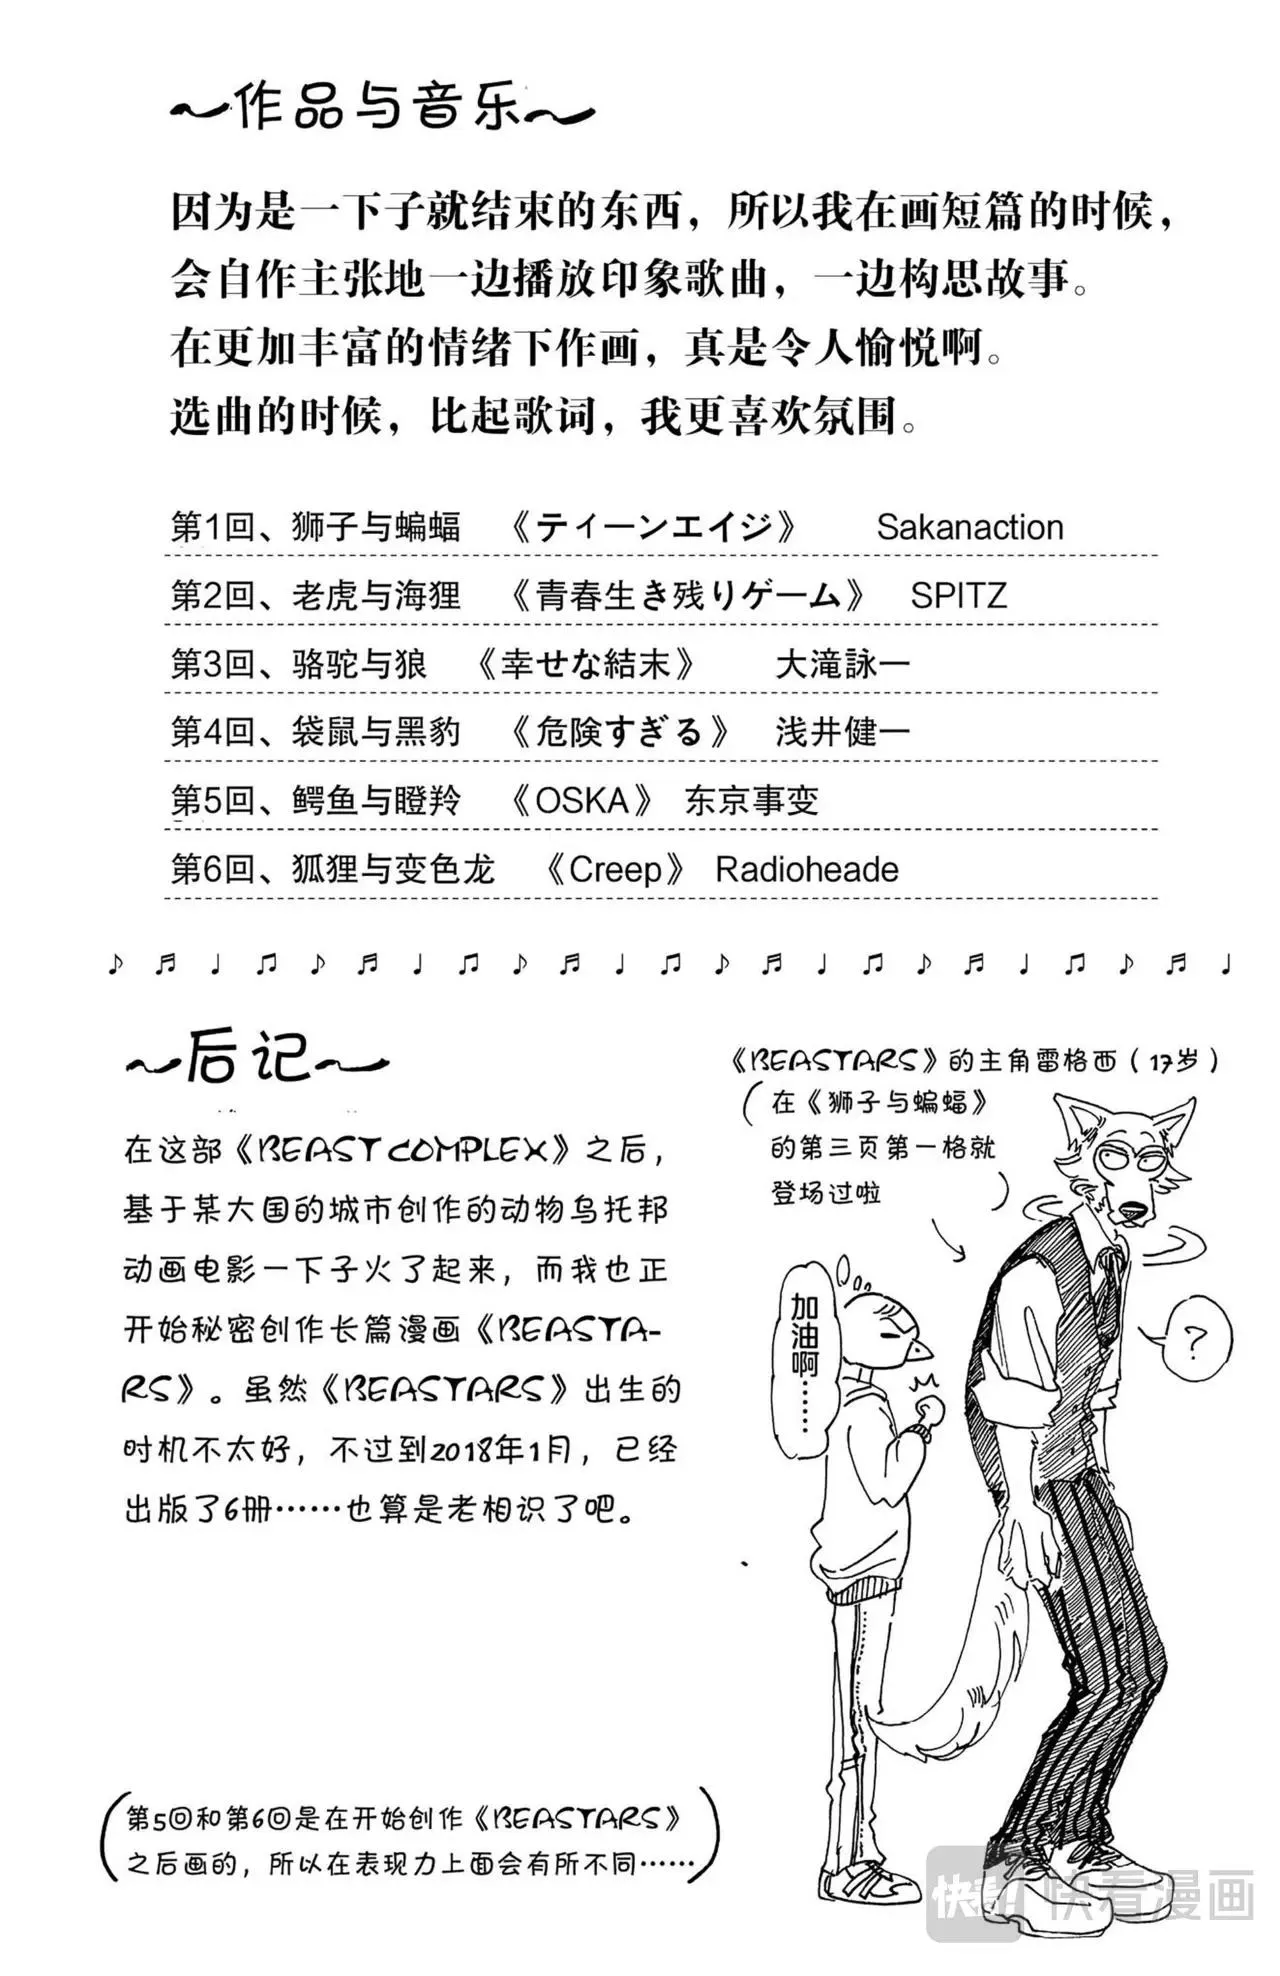 ~作品与音乐~
因为是一下子就结束的东西，所以我在画短篇的时候，
会自作主张地一边播放印象歌曲，一边构思故事。
在更加丰富的情绪下作画，真是令人愉悦啊。
选曲的时候，比起歌词，我更喜欢氛围。
第1回、狮子与蝙蝠 《ティーンエイジ》 Sakanaction
第2回、老虎与海狸 《青春生き残りゲーム》 SPITZ
第3回、骆驼与狼 《幸せな結末》 大滝詠一
第4回、袋鼠与黑豹 《危険すぎる》 浅井健一
第5回、鳄鱼与瞪羚 《OSKA》 东京事变
第6回、狐狸与变色龙 《Creep》 Radioheade
~后记~
在这部《BEAST COMPLEX》之后，
基于某大国的城市创作的动物乌托邦
动画电影一下子火了起来，而我也正
开始秘密创作长篇漫画《BEASTA-
RS》。虽然《BEASTARS》出生的
时机不太好，不过到2018年1月，已经
出版了6册……也算是老相识了吧。
《BEASTARS》的主角雷格西（17岁）
（在《狮子与蝙蝠》
的第三页第一格就
登场过啦）
加油啊……
？
（第5回和第6回是在开始创作《BEASTARS》
之后画的，所以在表现力上面会有所不同……）
快看!
快看漫画